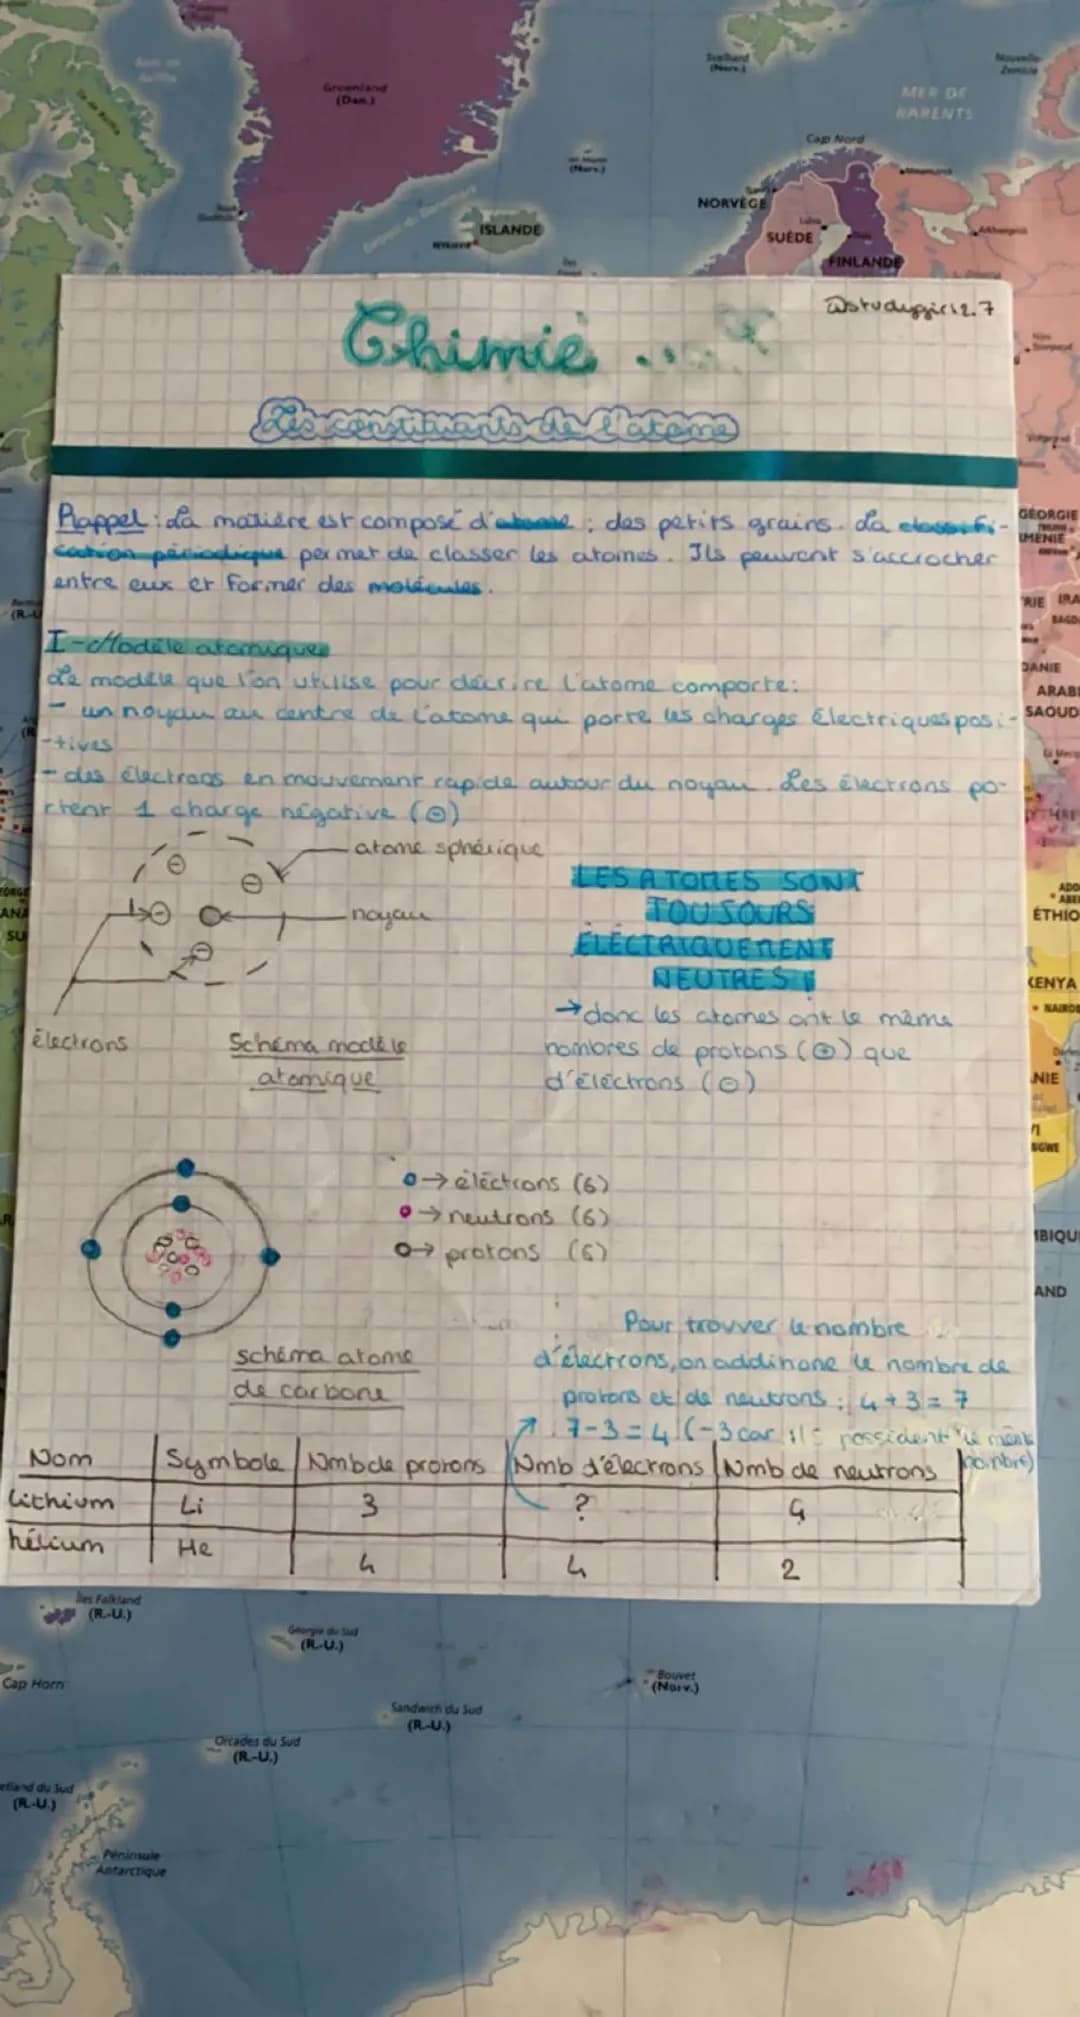 Groenland
(Dan.)
Svalbard
(Norv.)
Nouvelle
Zemble
MER DE
BARENTS
Cap Nord
(Norv.)
NORVÈGE
ISLANDE
SUÈDE
FINLANDE
@studygirl2.7
Chimie ...
Les constituants de l'atome
Rappel : La matière est composé d'atome : des petits grains. La classifi-
cation périodique permet de classer les atomes. Ils peuvent s'accrocher
entre eux et former des molécules.
I-Modèle atomique
Le modèle que l'on utilise pour décrire l'atome comporte:
- un noyau au centre de l'atome qui porte les charges électriques posi-
-tives
- des électrons en mouvement rapide autour du noyau. Les électrons po-
rtent 1 charge négative (⊖)
atome sphérique
noyau
électrons
Schéma modèle
atomique
LES ATOMES SONT
TOUJOURS
ÉLECTRIQUEMENT
NEUTRES !
→ donc les atomes ont le même
nombres de protons (⊕) que
d'éléctrons (⊖)
→ éléctrons (6)
→ neutrons (6)
→ protons (6)
schéma atome
de carbone
Pour trouver le nombre
d'électrons, on addinone le nombre de
protons et de neutrons : 4+3=7
7-3=4 (-3 car ils possident le même
nombre)
Nom Symbole Nmb de protons Nmb d'électrons Nmb de neutrons
Lithium Li 3 ? 4
hélium He 4 4 2
GÉORGIE
ARABI
SAOUD
ÉTHIO
KENYA
NAIROB
NIE
MBIQU
AND
Îles Falkland
(R.-U.)
Géorgie du Sud
(R.-U.)
Cap Horn
Bouvet
(Norv.)
Sandwich du Sud
(R.-U.)
Orcades du Sud
(R.-U.)
etland du Sud
(R.-U.)
Péninsule
Antarctique